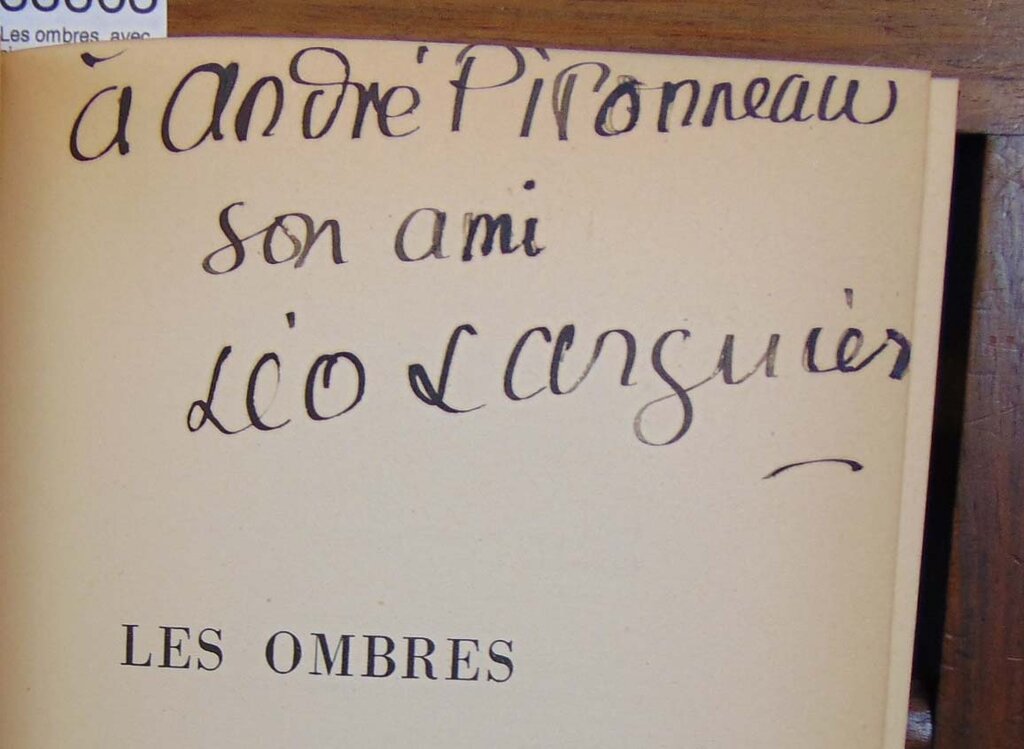 Les ombres, avec
à André Pironneau
son ami
Léo Larguier
LES OMBRES